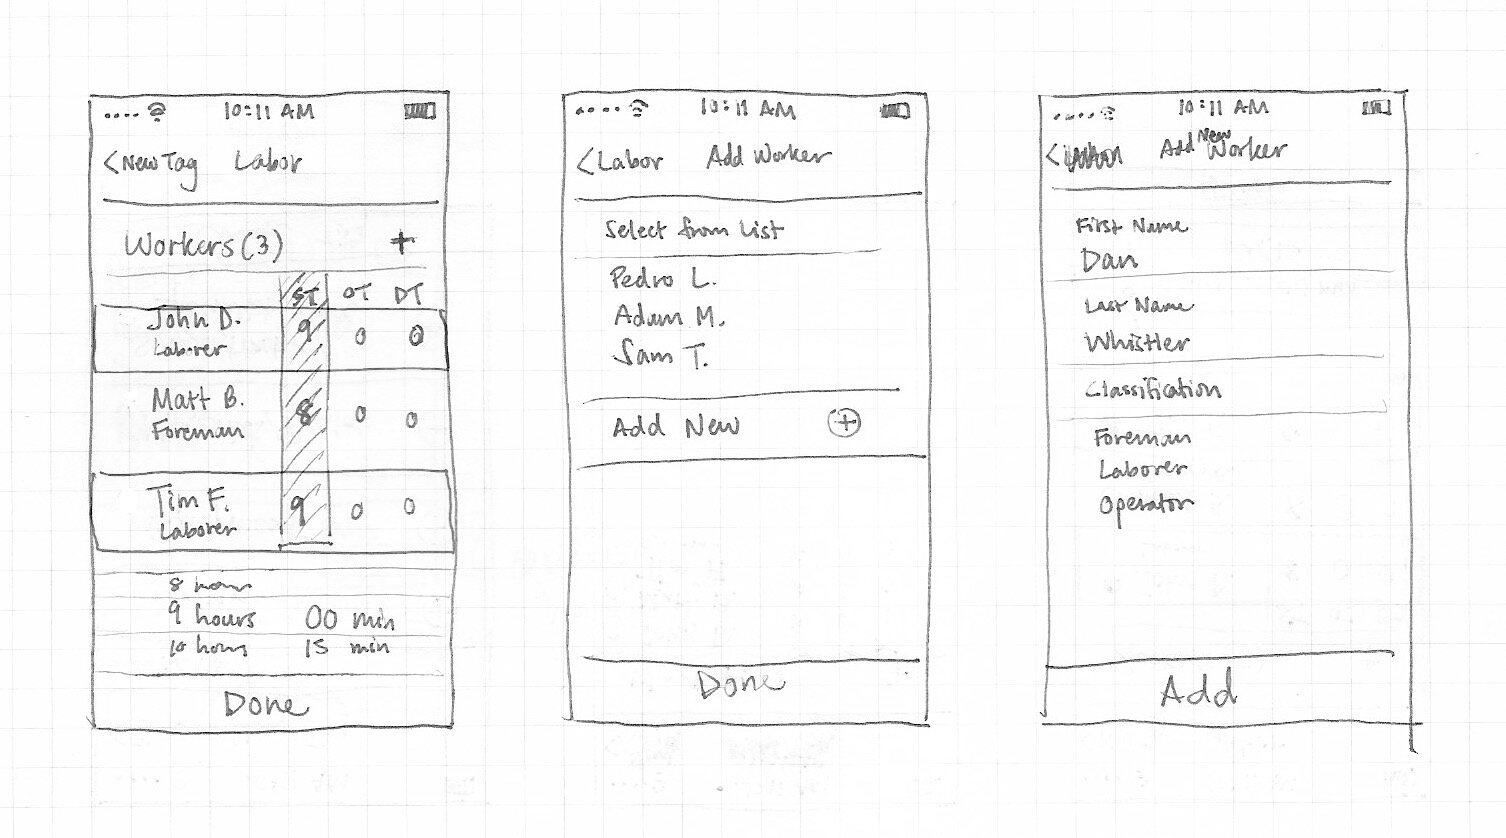 10:11 AM
<New Tag Labor
Workers (3) +
ST OT DT
John D.
Laborer
9 0 0
Matt B.
Foreman
8 0 0
Tim F.
Laborer
9 0 0
8 hours
9 hours 00 min
10 hours 15 min
Done
10:11 AM
<Labor Add Worker
Select from List
Pedro L.
Adam M.
Sam T.
Add New +
Done
10:11 AM
< Add New Worker
First Name
Dan
Last Name
Whistler
Classification
Foreman
Laborer
Operator
Add